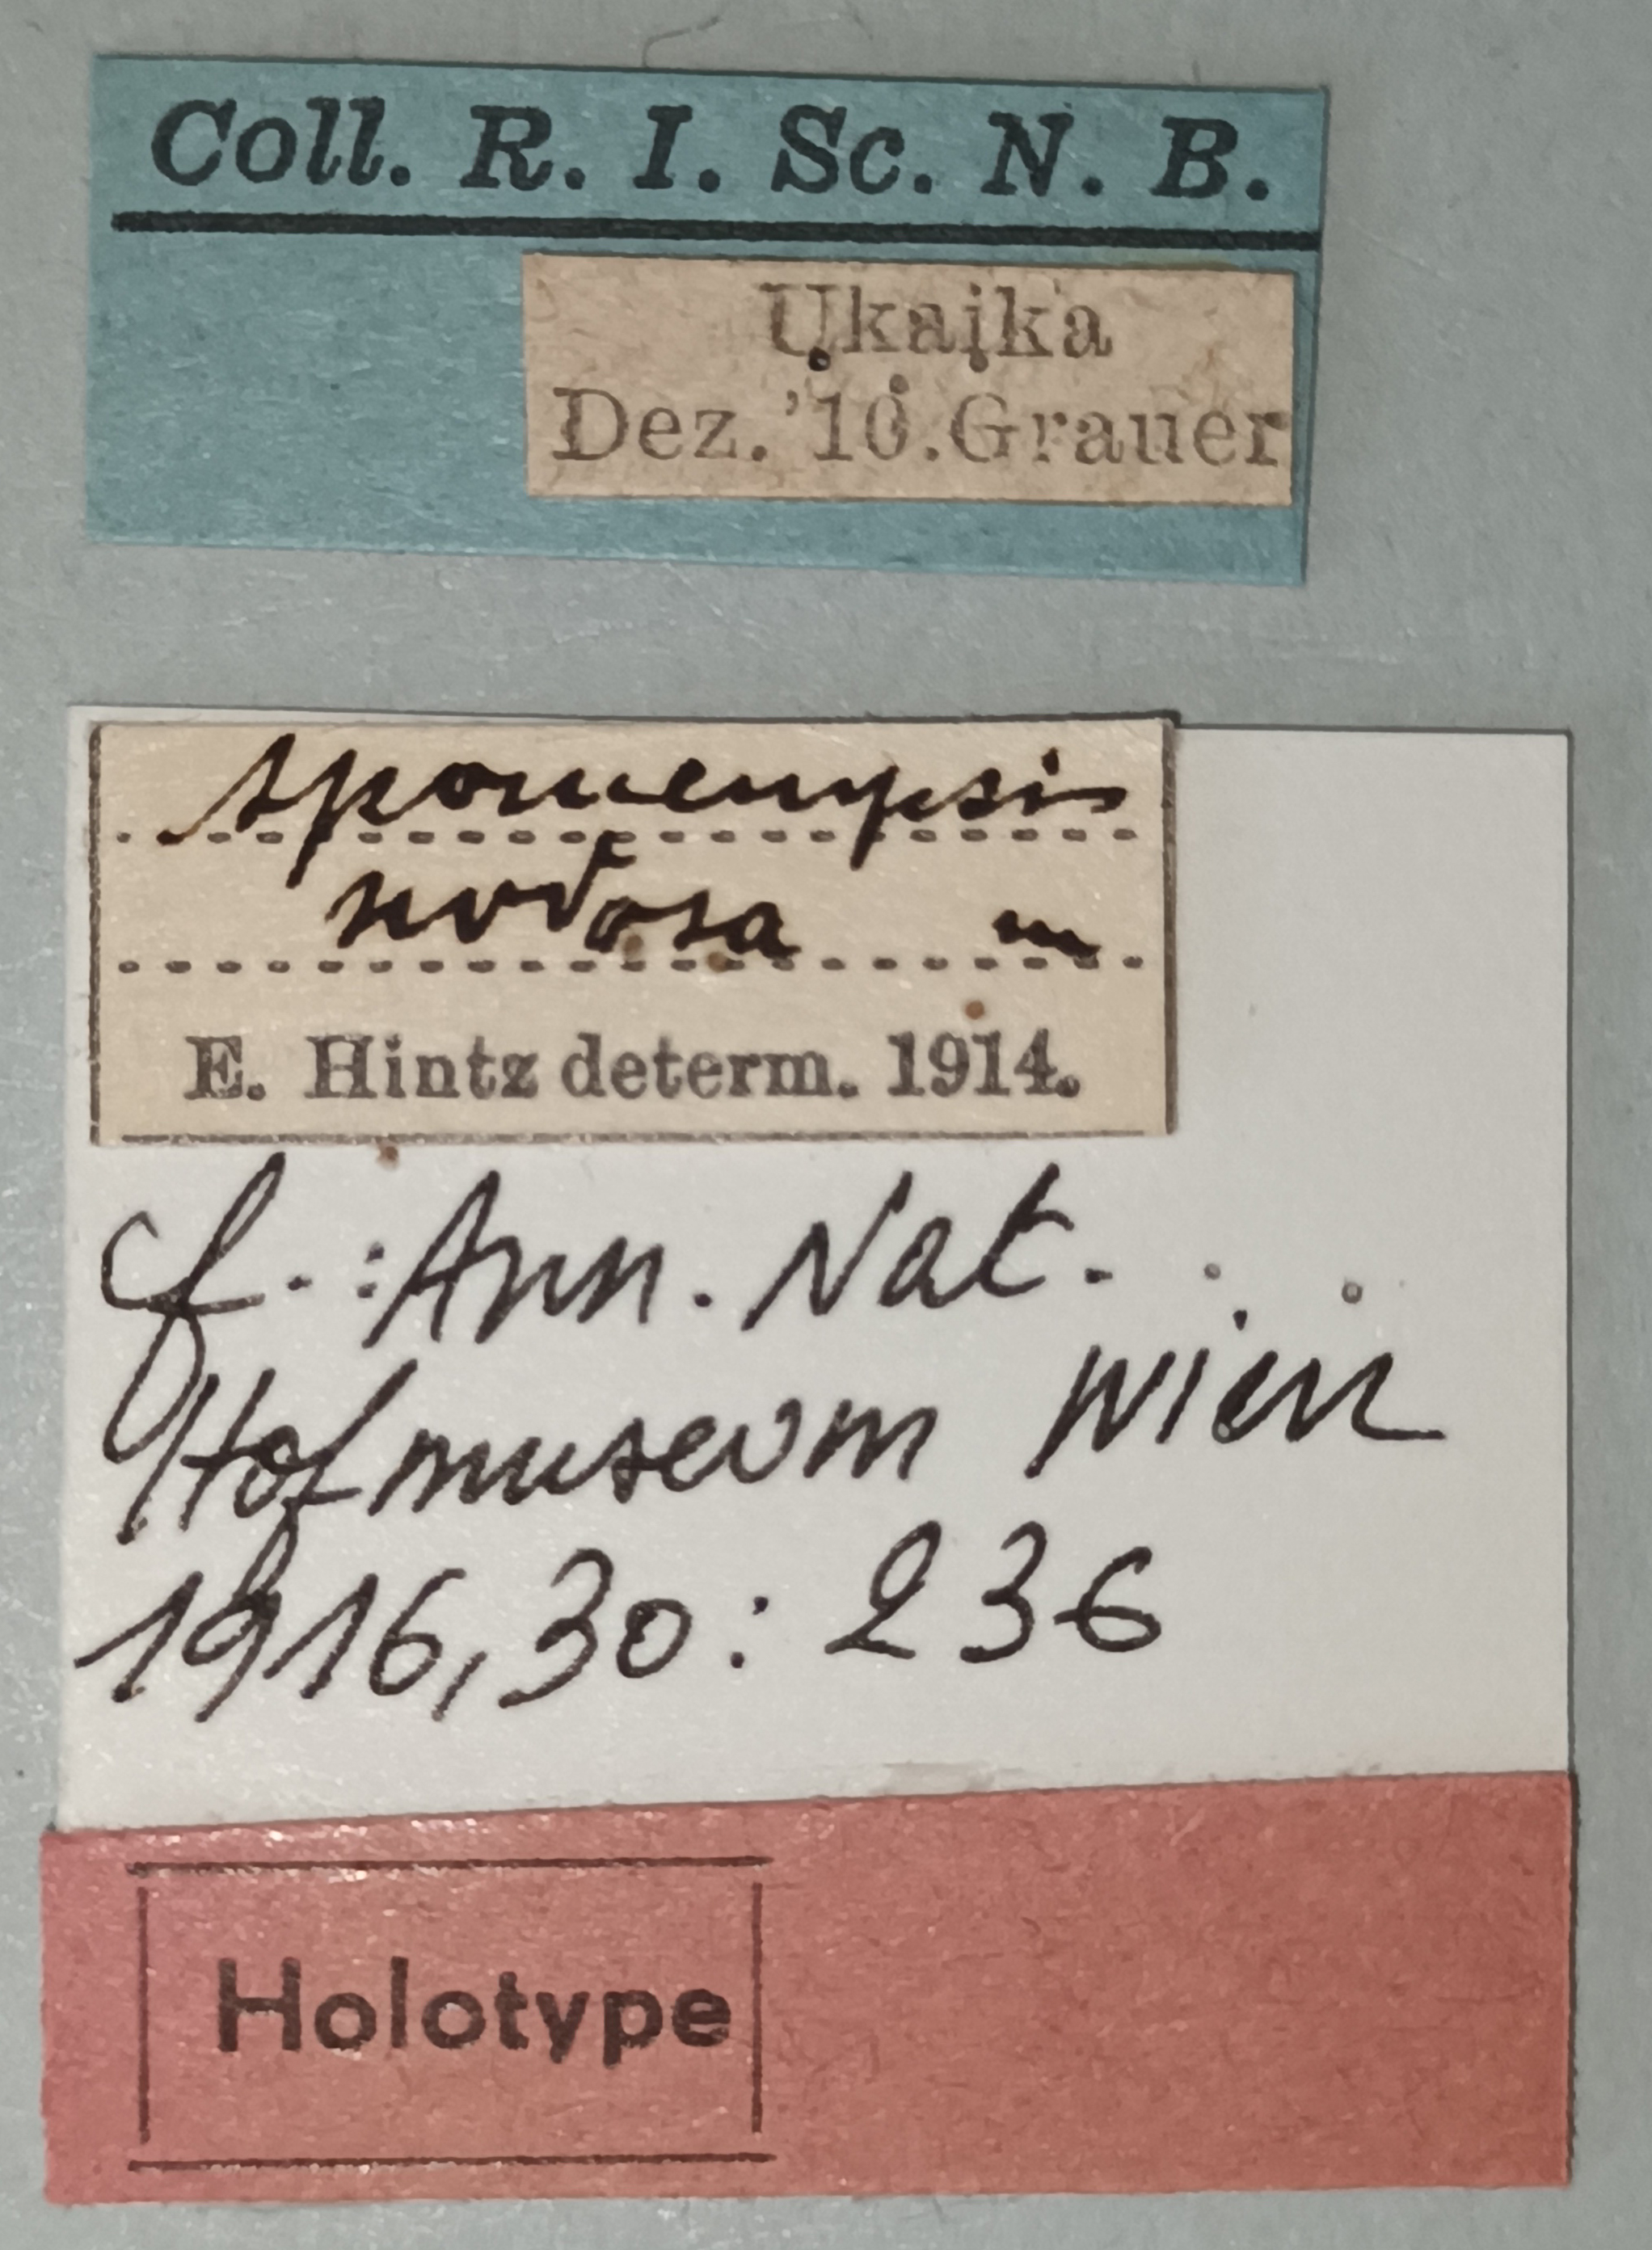 Coll. R. I. Sc. N. B.
Ukaika
Dez. '10. Grauer
Apomempsis
nodosa m
E. Hintz determ. 1914.
cf. : Ann. Nat.
Hofmuseum Wien
1916, 30 : 236
Holotype